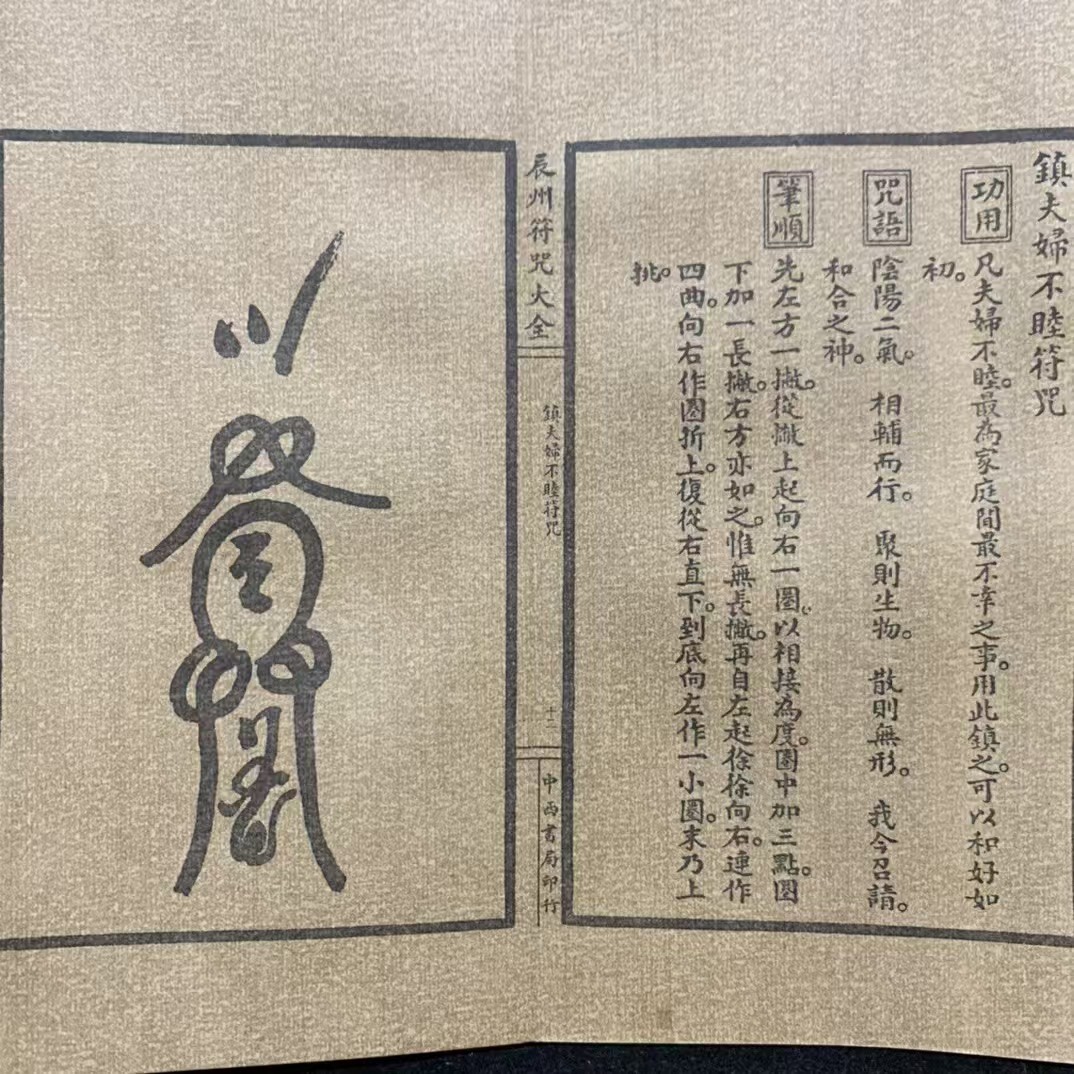 鎮夫婦不睦符咒
功用
凡夫婦不睦。最為家庭間最不幸之事。用此鎮之。可以和好如
初。
咒語
陰陽二氣。 相輔而行。 聚則生物。 散則無形。 我今召請。
和合之神。
筆順
先左方一撇。從撇上起向右一圈。以相接為度。圈中加三點。圈
下加一長撇。右方亦如之。惟無長撇。再自左起徐徐向右。連作
四曲。向右作圈折上。復從右直下。到底向左作一小圈。末乃上
挑。
辰州符咒大全
鎮夫婦不睦符咒
十二
中西書局印行